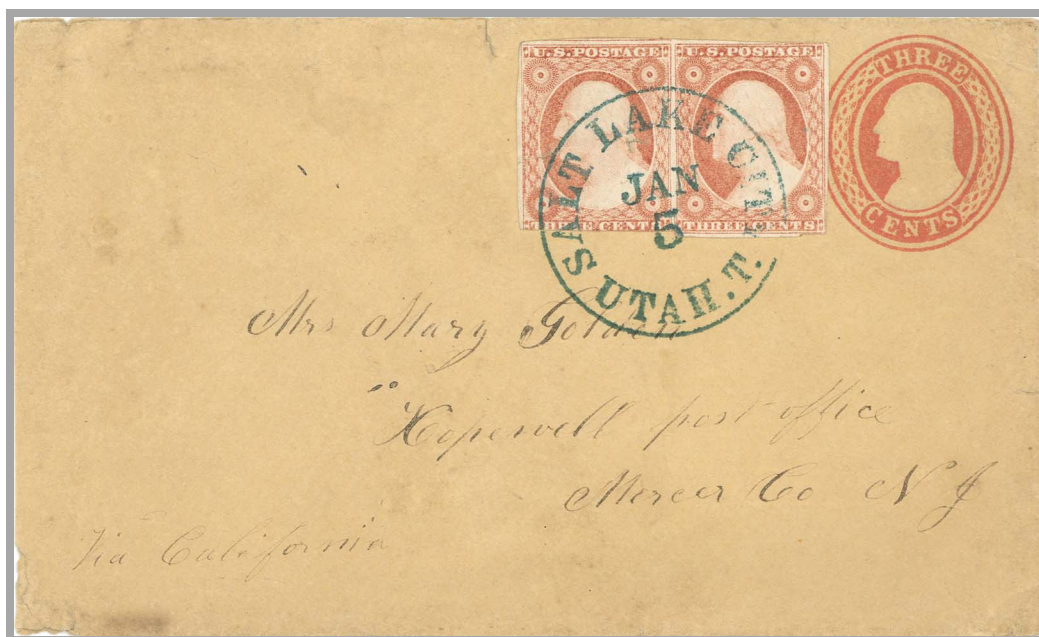 U.S.POSTAGE U.S.POSTAGE
THREE CENTS THREE CENTS
THREE
CENTS
SALT LAKE CITY
JAN
5
UTAH.T.
Mrs Mary Golden
Hopewell post office
Mercer Co N J
Via California